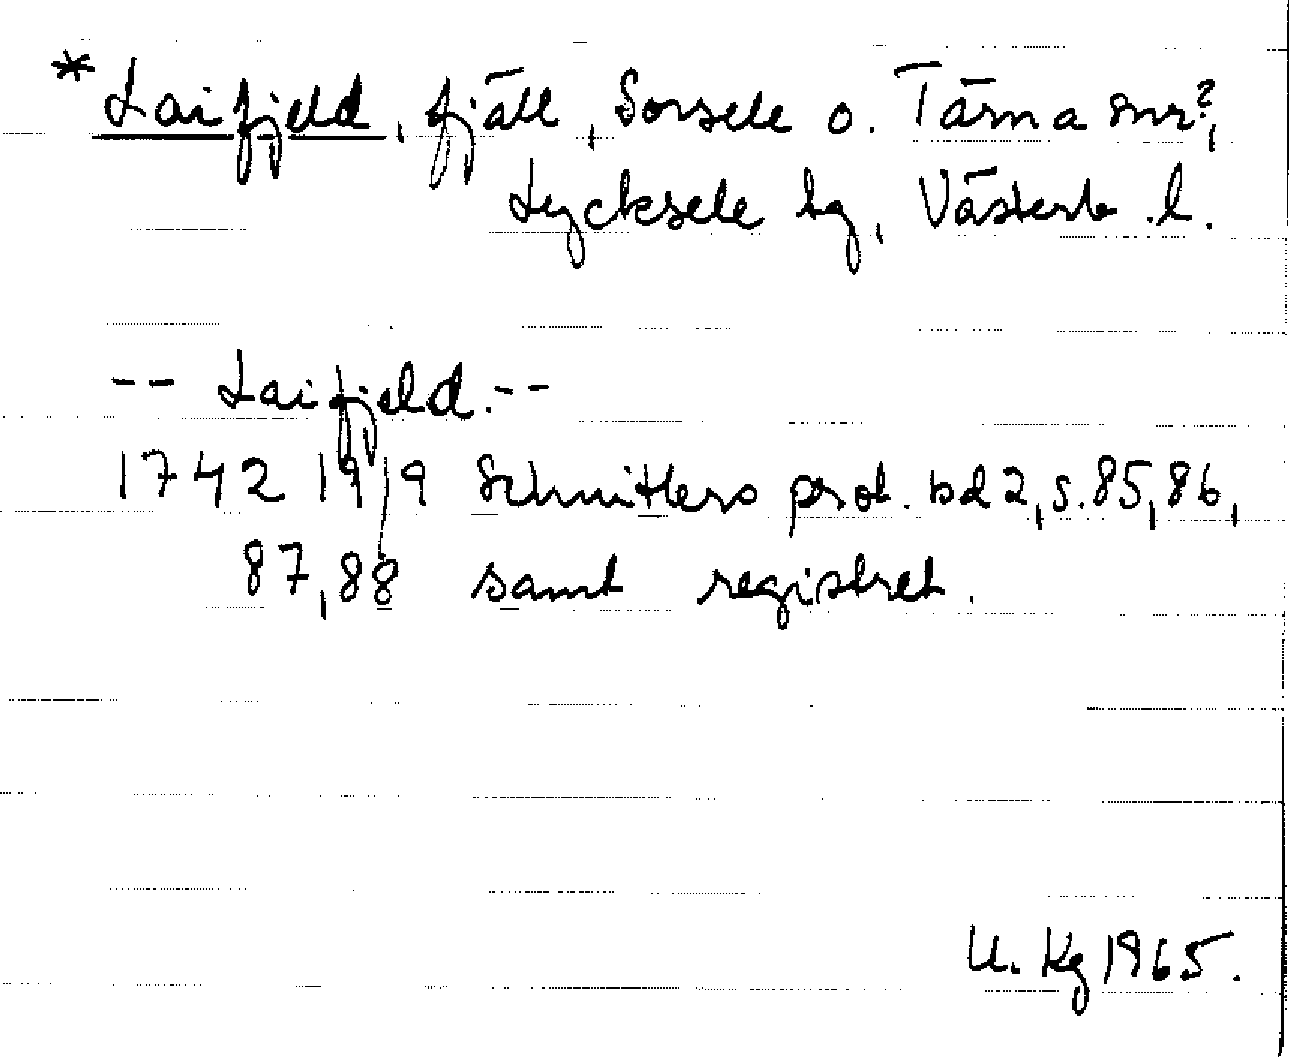 * Laifjeld, fjäll, Sorsele o. Tärna snr?,
Lycksele lg, Västerb. l.
-- Laifjeld. --
1742 19/9 Schnitlers prot. bd 2, s. 85, 86,
87, 88 samt registret.
U. Kg 1965.